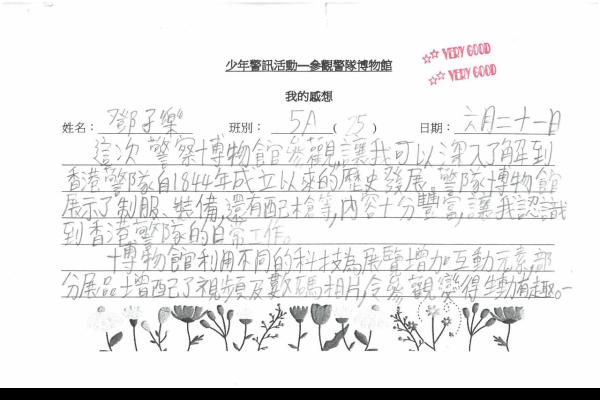 少年警訊活動—參觀警隊博物館
☆☆ VERY GOOD
☆☆ VERY GOOD
我的感想
姓名：鄧子樂 班別：5A（25） 日期：六月二十一日
這次警察博物館參觀,讓我可以深入了解到
香港警隊自1844年成立以來的歷史發展。警隊博物館
展示了制服、裝備,還有配槍等,內容十分豐富,讓我認識
到香港警隊的日常工作。
博物館利用不同的科技為展覽增加互動元素,部
分展品增配了視頻及數碼相片,令參觀變得生動有趣。